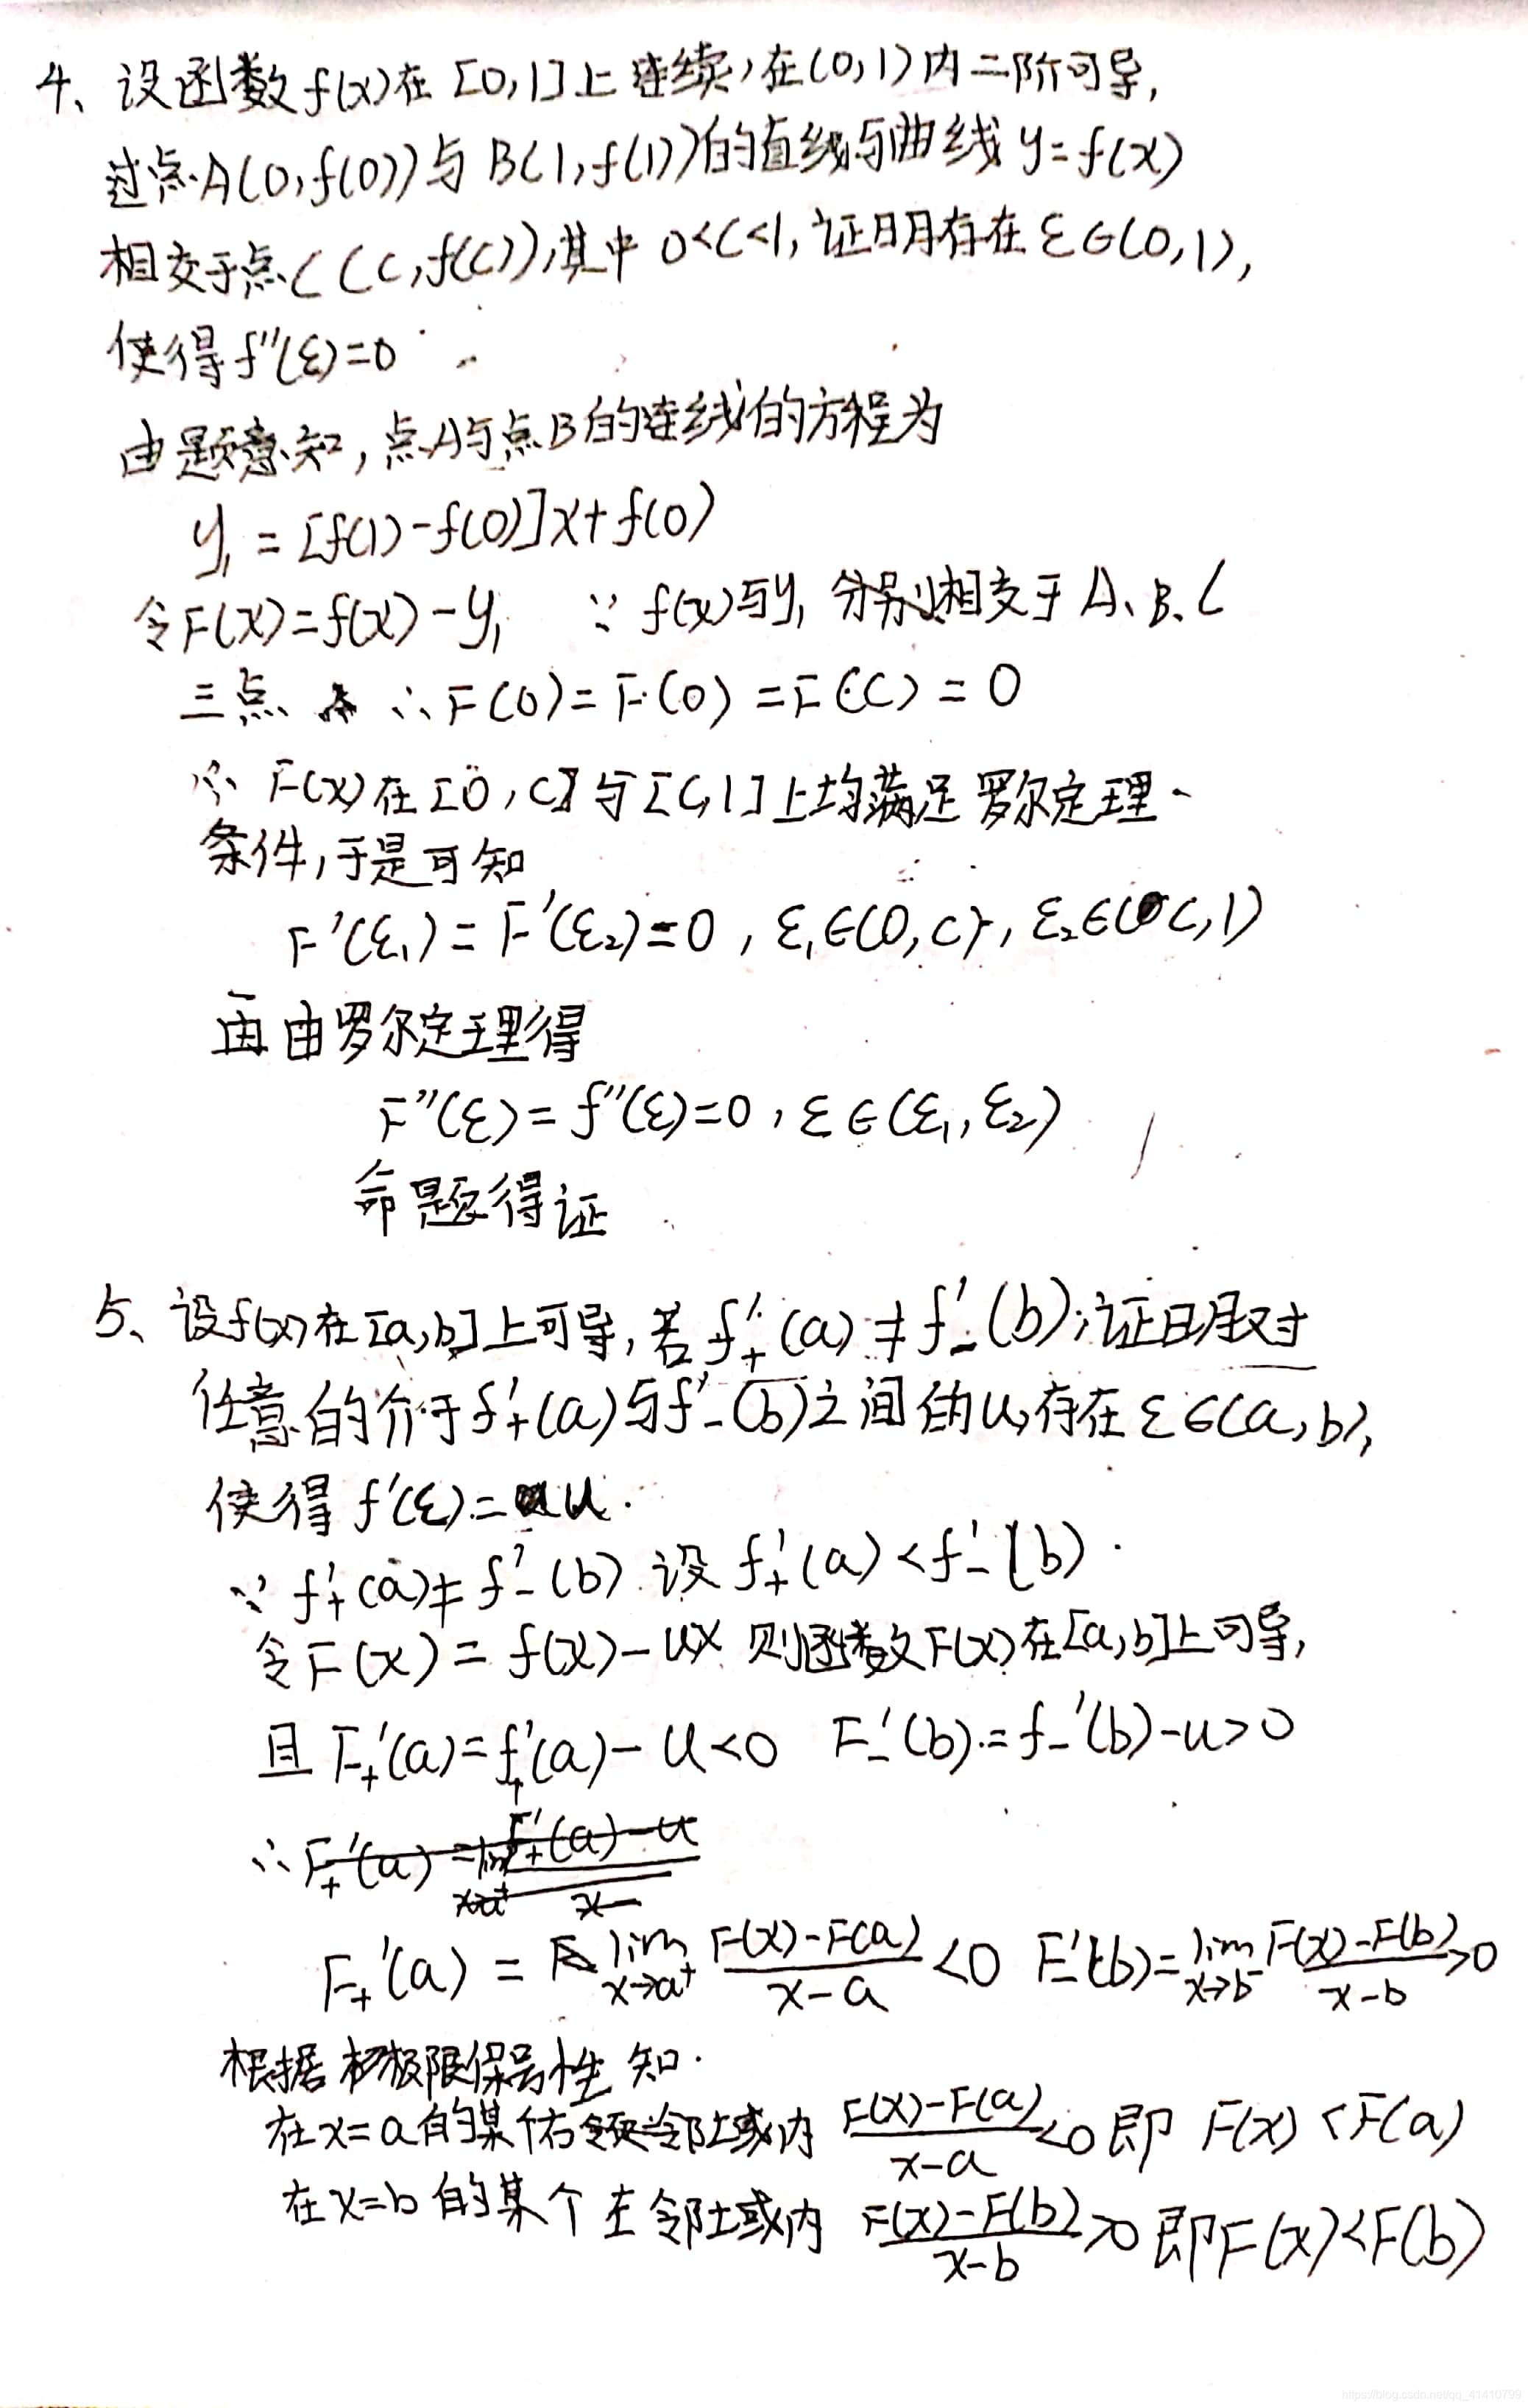 4、设函数f(x)在[0,1]上连续,在(0,1)内二阶可导,
过点A(0,f(0))与B(1,f(1))的直线与曲线y=f(x)
相交于点C(C,f(C)),其中0<C<1,证明存在ξ∈(0,1),
使得f''(ξ)=0
由题意知,点A与点B的连线的方程为
y₁=[f(1)-f(0)]x+f(0)
令F(x)=f(x)-y₁ ∵f(x)与y₁分别相交于A、B、C
三点 ∴F(0)=F(0)=F(C)=0
∴F(x)在[0,C]与[C,1]上均满足罗尔定理
条件,于是可知
F'(ξ₁)=F'(ξ₂)=0,ξ₁∈(0,C),ξ₂∈(C,1)
再由罗尔定理得
F''(ξ)=f''(ξ)=0,ξ∈(ξ₁,ξ₂)
命题得证
5、设f(x)在[a,b]上可导,若f₊'(a)≠f₋'(b),证明对
任意的介于f₊'(a)与f₋'(b)之间的u,存在ξ∈(a,b),
使得f'(ξ)=u.
∵f₊'(a)≠f₋'(b) 设f₊'(a)<f₋'(b).
令F(x)=f(x)-ux 则函数F(x)在[a,b]上可导,
且F₊'(a)=f₊'(a)-u<0 F₋'(b)=f₋'(b)-u>0
∴
F₊'(a)=lim x→a⁺ (F(x)-F(a))/(x-a)<0 F₋'(b)=lim x→b⁻ (F(x)-F(b))/(x-b)>0
根据极限保号性知.
在x=a的某个右邻域内 (F(x)-F(a))/(x-a)<0即 F(x)<F(a)
在x=b的某个左邻域内 (F(x)-F(b))/(x-b)>0即F(x)<F(b)
https://blog.csdn.net/qq_41410799